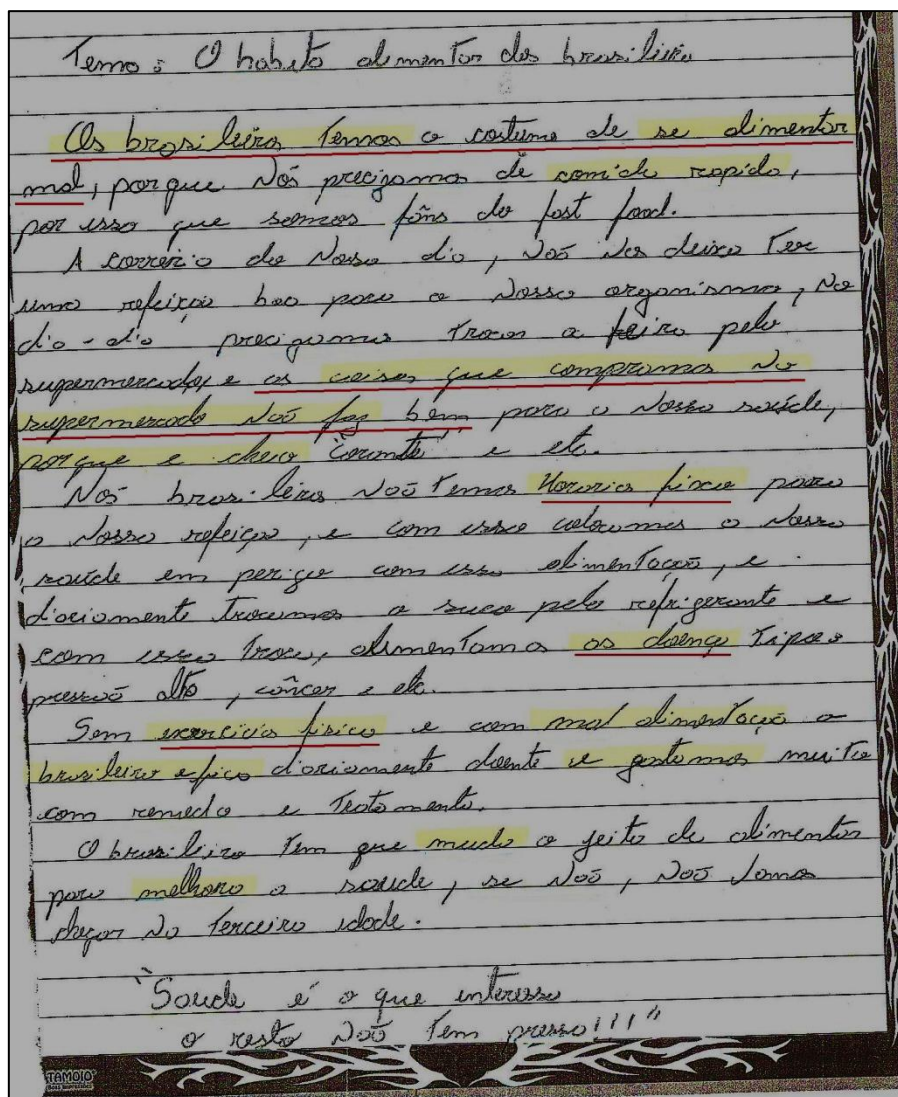 Tema: O habito alimentar dos brasileiro
Os brasileiro temos o costume de se alimentar
mal, porque nós precizamos de comida rapida,
por isso que somos fâns do fast food.
A correria do nosso dia, naõ nos deixa ter
uma refeiçaõ boa para o nosso organismo, no
dia-dia precizamos trocar a feira pelo
supermercado, e as coisas que compramos no
supermercado naõ faz bem para a nossa saúde,
porque e cheio "corante" e etc.
Nós brasileiro naõ temos Horario fixo para
a nossa refeiçaõ, e com isso colocamos a nossa
saúde em perigo com essa alimentaçaõ, e
diariamente trocamos o suco pelo refrigerante e
com essa troca, alimentamos as doença tipo a
pressaõ alta, câncer e etc.
Sem exercicio fisico e com mal alimentaçaõ o
brasileiro e fica diariamente doente e gastamos muito
com remedo e tratamento.
O brasileiro tem que muda o jeito de alimentar
para melhora a saude, se naõ, naõ vamos
chegar na terceira idade.
"Saude é o que interessa
o resto naõ tem pressa!!!"
TAMOIO